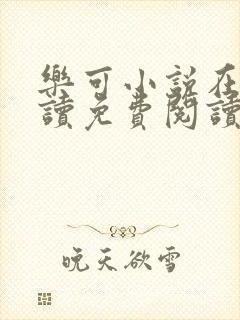 樂可小説在
讀免費閱讀
晚天欲雪